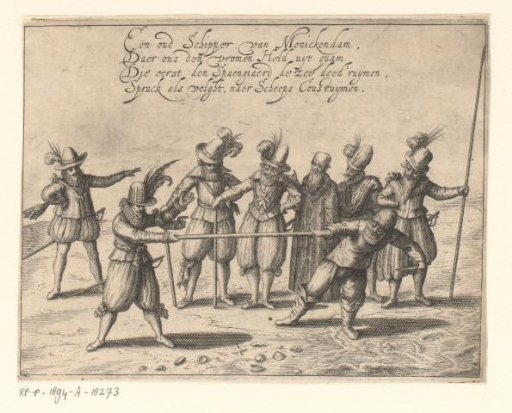 Een oud Schipper van Monickendam,
Daer ons den vromen Held uyt quam
Die eerst den Spaengiaerd de zee deed ruymen,
Sprack als volght, naer Scheeps Coustuymen.
RP-P-1894-A-18273